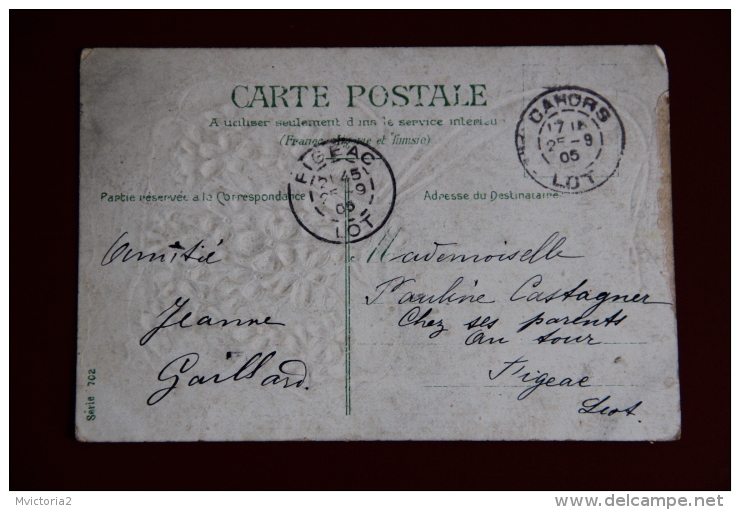 CARTE POSTALE
A utiliser seulement dans le service intérieur
(France, Algérie et Tunisie)
CAHORS
25 -9
05
LOT
FIGEAC
-9
05
LOT
Partie réservée a la Correspondance
Adresse du Destinataire
Amitié
Jeanne
Gaillard.
Mademoiselle
Pauline Castagner
Chez ses parents
Au tour
Figeac
Lot.
Série 702
Mvictoria2
www.delcampe.net